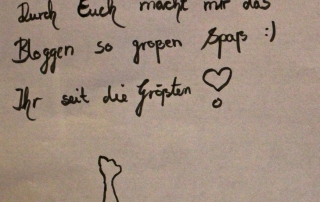 Durch Euch macht mir das
Bloggen so großen Spaß :)
Ihr seit die Größten